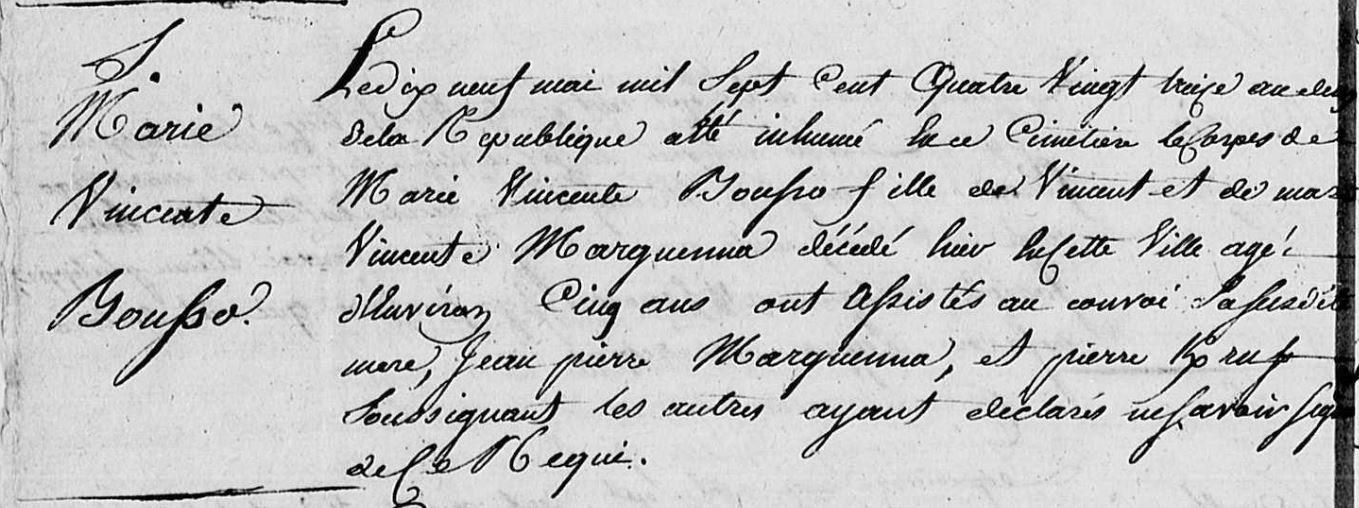 S.
Marie
Vincente
Bousso.
Le dix neuf mai mil Sept Cent Quatre Vingt treize an deux
de la Republique a été inhumé En ce Cimetiere le Corps de
Marie Vincente Bousso fille de Vincent et de marie
Vincente Marquenna décédé hier En Cette Ville agé
d'Environ Cinq ans ont assistés au convoi Sa susdite
mere, Jean pierre Marquenna, et pierre
Soussignant les autres ayant declarés ne savoir signer
de Ce Requi.